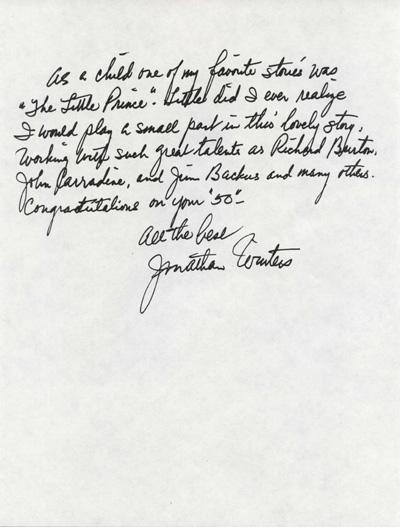 As a child one of my favorite stories was
"The Little Prince". Little did I ever realize
I would play a small part in this lovely story,
Working with such great talents as Richard Burton,
John Carradine, and Jim Backus and many others.
Congratulations on your "50"-
All the best
Jonathan Winters